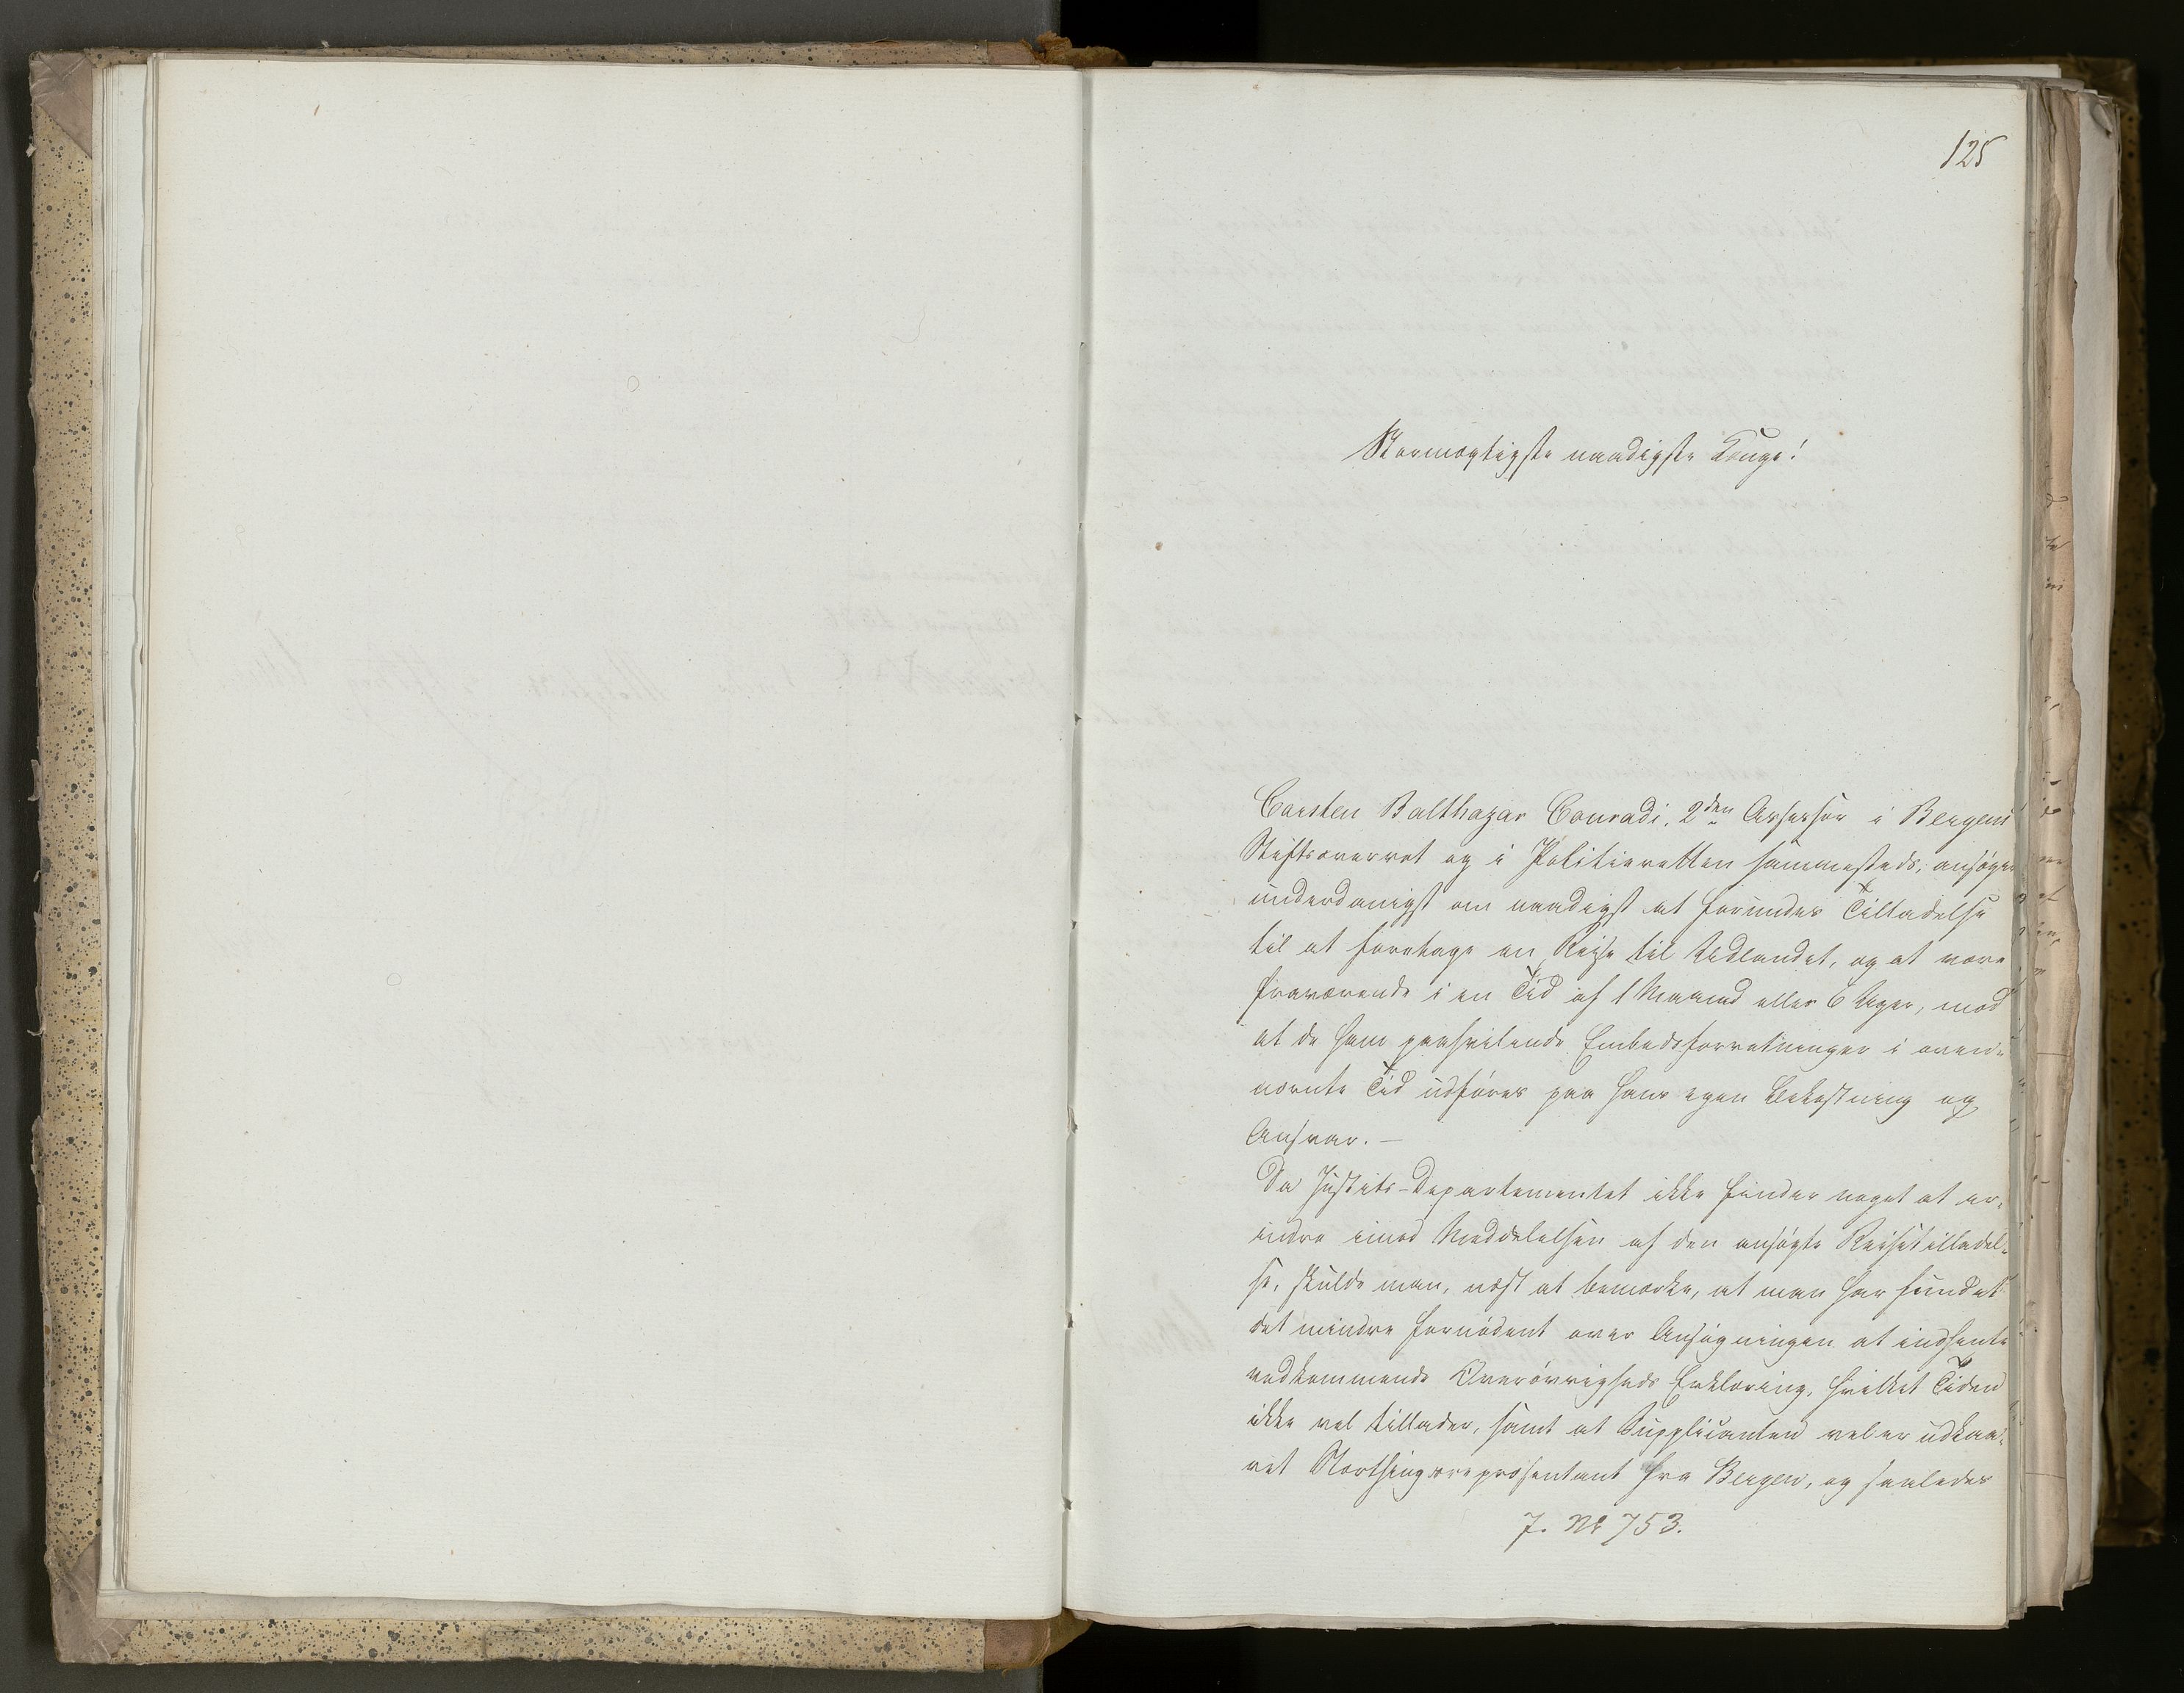 125
Stormægtigste naadigste Konge!
Carsten Balthazar Conradi, 2den Assessor i Bergens
Stiftsoverret og i Politieretten sammesteds, ansøger
underdanigst om naadigst at forundes Tilladelse
til at foretage en Reise til Udlandet, og at være
fraværende i en Tid af 1 Maaned eller 6 Uger, mod
at de ham paahvilende Embedsforretninger i oven-
nævnte Tid udføres paa hans egen Bekostning og
Ansvar. —
Da Justits-Departementet ikke finder noget at er-
indre imod Meddelelsen af den ansøgte Reisetilladel-
se, skulde man, næst at bemærke, at man har fundet
det mindre fornødent over Ansøgningen at indhente
vedkommende Overøvrigheds Erklæring, hvilket Tiden
ikke vel tillader, samt at Supplicanten vel er udkaa-
ret Storthingsrepræsentant fra Bergen, og saaledes
J. No 753.